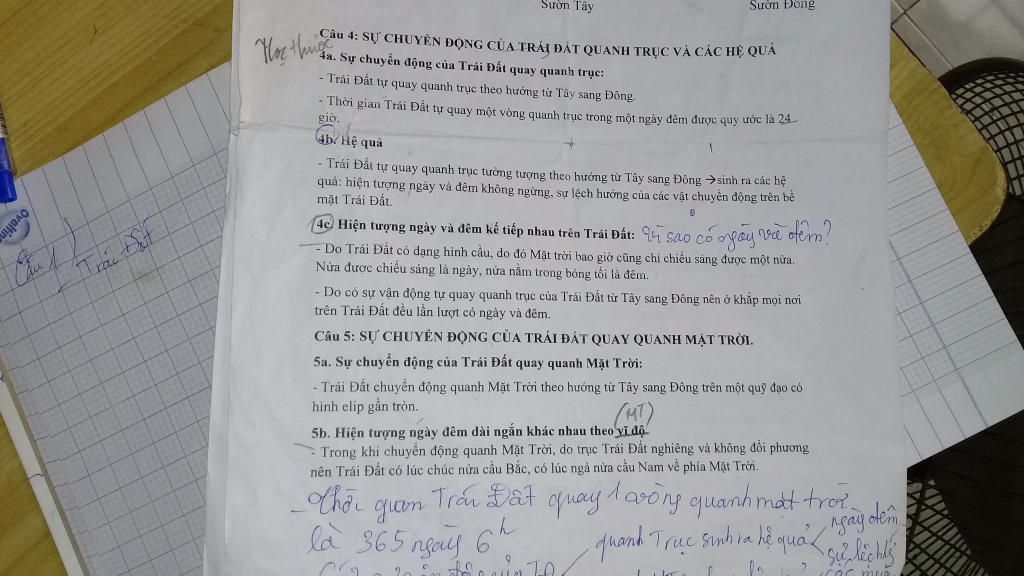 Sườn Tây Sườn Đông
Học thuộc
Câu 4: SỰ CHUYỂN ĐỘNG CỦA TRÁI ĐẤT QUANH TRỤC VÀ CÁC HỆ QUẢ
4a. Sự chuyển động của Trái Đất quay quanh trục:
- Trái Đất tự quay quanh trục theo hướng từ Tây sang Đông.
- Thời gian Trái Đất tự quay một vòng quanh trục trong một ngày đêm được quy ước là 24
giờ.
4b. Hệ quả
- Trái Đất tự quay quanh trục tưởng tượng theo hướng từ Tây sang Đông →sinh ra các hệ
quả: hiện tượng ngày và đêm không ngừng, sự lệch hướng của các vật chuyển động trên bề
mặt Trái Đất.
4c. Hiện tượng ngày và đêm kế tiếp nhau trên Trái Đất: Vì sao có ngày và đêm?
- Do Trái Đất có dạng hình cầu, do đó Mặt trời bao giờ cũng chỉ chiếu sáng được một nửa.
Nửa được chiếu sáng là ngày, nửa nằm trong bóng tối là đêm.
- Do có sự vận động tự quay quanh trục của Trái Đất từ Tây sang Đông nên ở khắp mọi nơi
trên Trái Đất đều lần lượt có ngày và đêm.
Câu 5: SỰ CHUYỂN ĐỘNG CỦA TRÁI ĐẤT QUAY QUANH MẶT TRỜI.
5a. Sự chuyển động của Trái Đất quay quanh Mặt Trời:
- Trái Đất chuyển động quanh Mặt Trời theo hướng từ Tây sang Đông trên một quỹ đạo có
hình elip gần tròn.
(MT)
5b. Hiện tượng ngày đêm dài ngắn khác nhau theo vĩ độ
- Trong khi chuyển động quanh Mặt Trời, do trục Trái Đất nghiêng và không đổi phương
nên Trái Đất có lúc chúc nửa cầu Bắc, có lúc ngả nửa cầu Nam về phía Mặt Trời.
- Thời gian Trái Đất quay 1 vòng quanh mặt trời
là 365 ngày 6h
quanh Trục sinh ra hệ quả
ngày đêm
sự lệch
Câu 1) Trái Đất